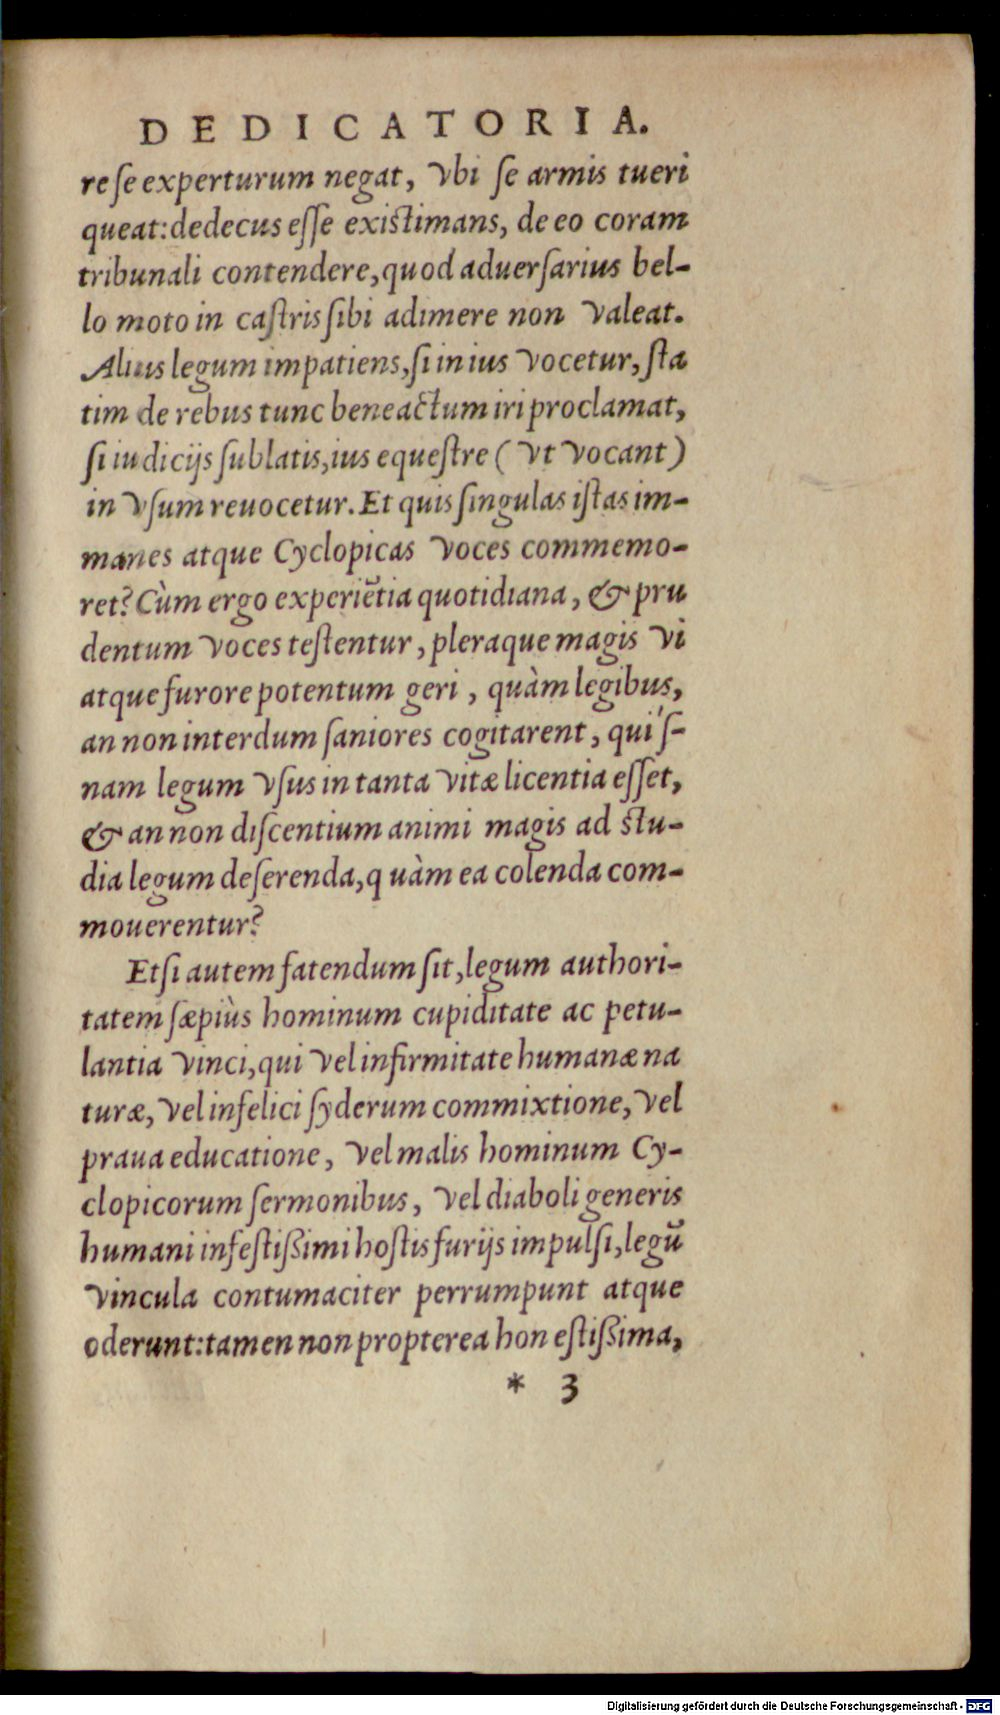 DEDICATORIA.
re se experturum negat, vbi se armis tueri
queat: dedecus esse existimans, de eo coram
tribunali contendere, quod aduersarius bel-
lo moto in castris sibi adimere non valeat.
Alius legum impatiens, si in ius vocetur, sta
tim de rebus tunc bene actum iri proclamat,
si iudicijs sublatis, ius equestre ( vt vocant )
in vsum reuocetur. Et quis singulas istas im-
manes atque Cyclopicas voces commemo-
ret? Cùm ergo experiẽtia quotidiana, & pru
dentum voces testentur, pleraque magis vi
atque furore potentum geri, quàm legibus,
an non interdum saniores cogitarent, quis-
nam legum vsus in tanta vitæ licentia esset,
& an non discentium animi magis ad stu-
dia legum deserenda, quàm ea colenda com-
mouerentur?
Etsi autem fatendum sit, legum authori-
tatem sæpiùs hominum cupiditate ac petu-
lantia vinci, qui vel infirmitate humanæ na
turæ, vel infelici syderum commixtione, vel
praua educatione, vel malis hominum Cy-
clopicorum sermonibus, vel diaboli generis
humani infestißimi hostis furijs impulsi, legũ
vincula contumaciter perrumpunt atque
oderunt: tamen non propterea honestißima,
* 3
Digitalisierung gefördert durch die Deutsche Forschungsgemeinschaft - DFG